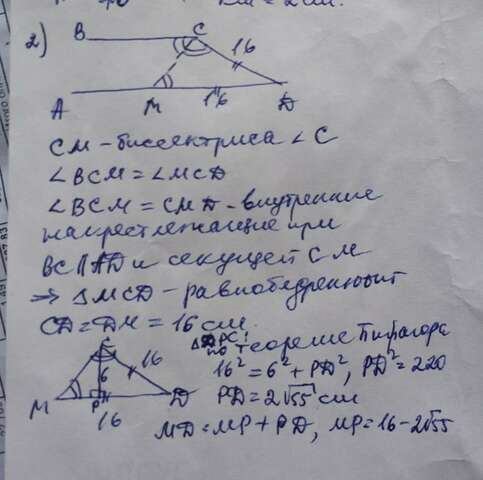 2)
B C 16
A M 16 D
CM - биссектриса ∠ C
∠ BCM = ∠ MCD
∠ BCM = CMD - внутренние
накрестлежащие при
BC || AD и секущей CM
⇒ △ MCD - равнобедренный
CD = DM = 16 см.
△DPC:
по теореме Пифагора
16² = 6² + PD², PD² = 220
PD = 2√55 см
MD = MP + PD, MP = 16 - 2√55
C 16
6
M P D
16